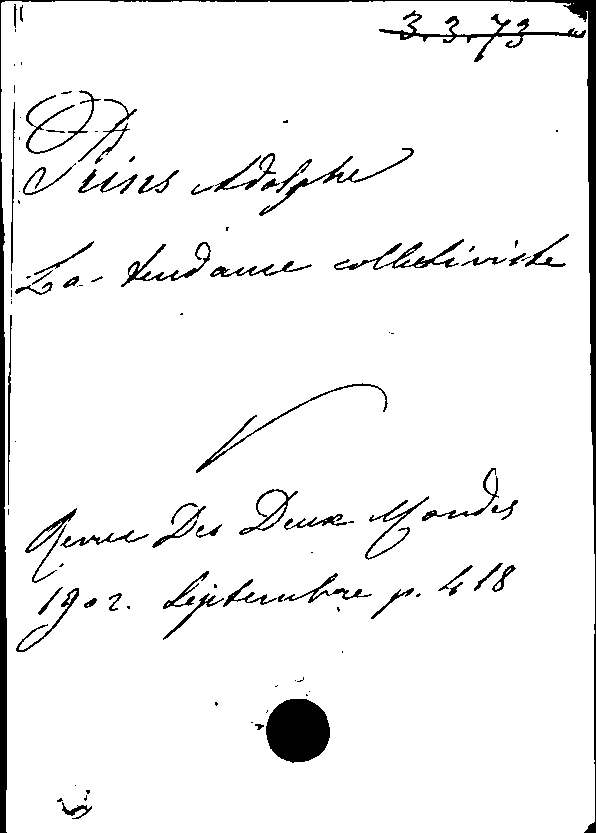 3.3.73
Prins Adolphe
La tendance collectiviste
Revue Des Deux Mondes
1902. Septembre p. 418